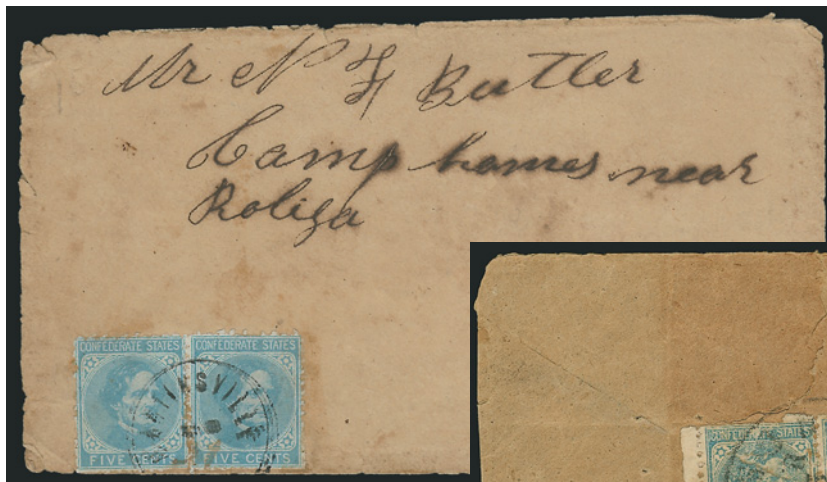 Mr N F Butler
Camp homes near
Roliga
CONFEDERATE STATES CONFEDERATE STATES
FIVE CENTS FIVE CENTS
CONFEDERATE STATES